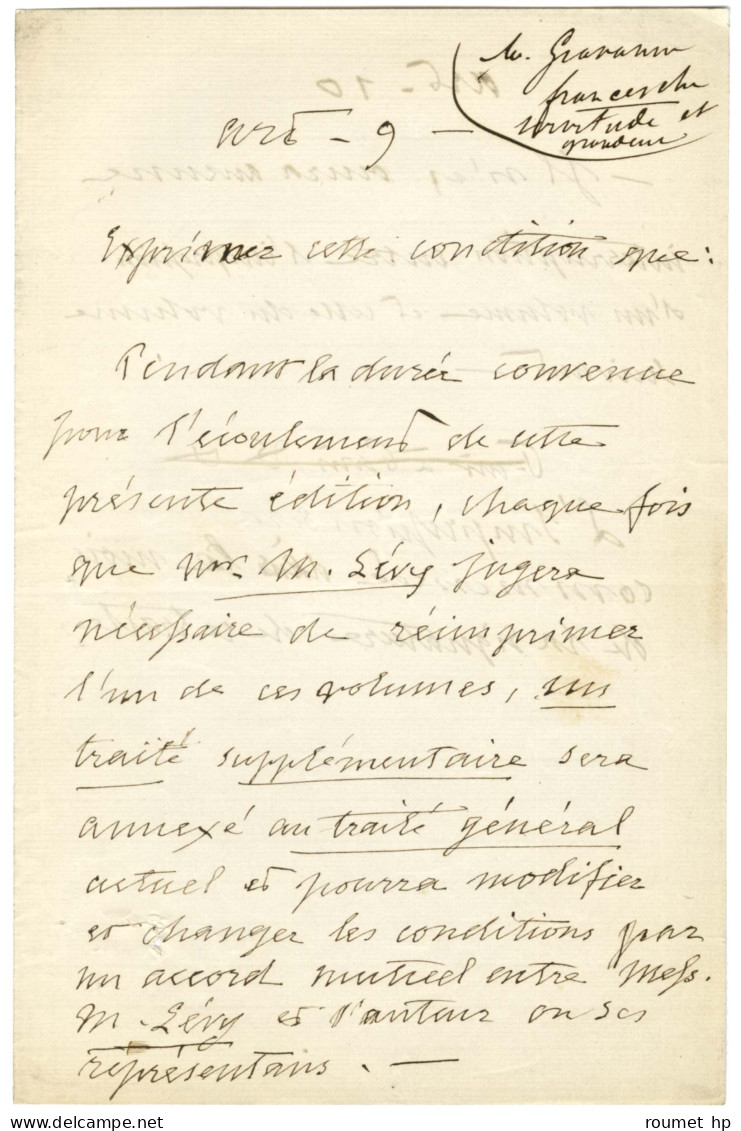 art - 9 -
servitude et
grandeur
Exprimer cette condition que :
Pendant la durée convenue
pour l'écoulement de cette
présente édition, chaque fois
que Mr. M. Lévy jugera
nécessaire de réimprimer
l'un de ces volumes, un
traité supplémentaire sera
annexé au traité général
actuel et pourra modifier
et changer les conditions par
un accord mutuel entre Mess.
M. Lévy et l'auteur ou ses
représentans. —
roumet hp